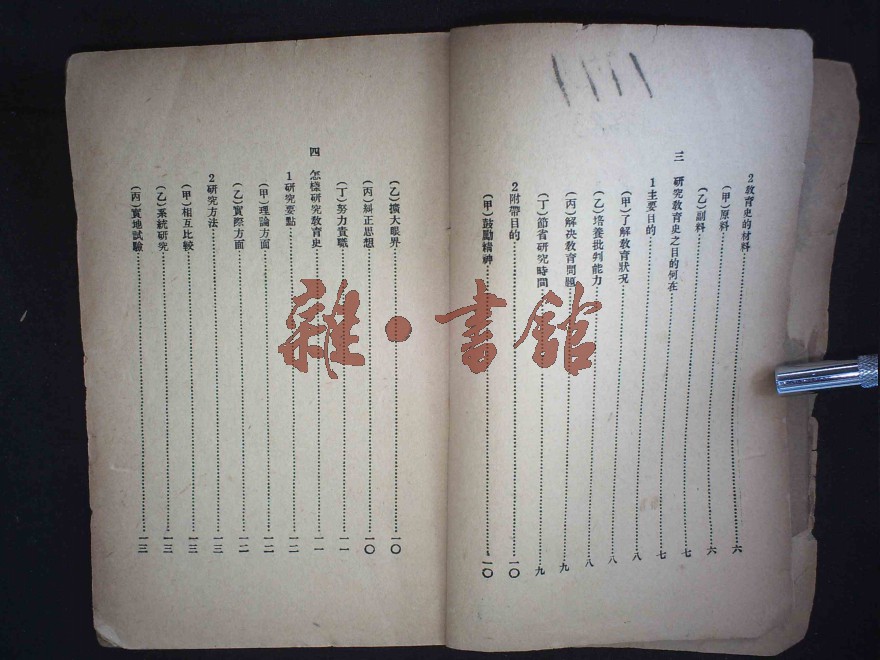 2教育史的材料……六
(甲)原料……六
(乙)副料……七
三 研究敎育史之目的何在……七
1主要目的……八
(甲)了解敎育狀况……八
(乙)培養批判能力……八
(丙)解决敎育問題……九
(丁)節省研究時間……九
2附帶目的……一〇
(甲)鼓勵精神……一〇
(乙)擴大眼界……一〇
(丙)糾正思想……一〇
(丁)努力責職……一一
四 怎樣研究敎育史……一一
1研究要點……一二
(甲)理論方面……一二
(乙)實際方面……一二
2研究方法……一三
(甲)相互比較……一三
(乙)系統研究……一三
(丙)實地試驗……一三
雜·書館